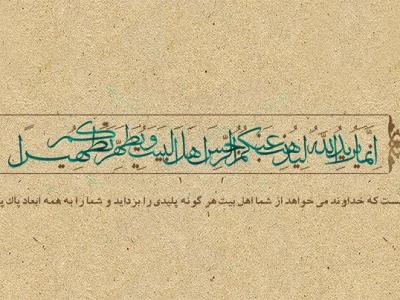 إِنَّمَا يُرِيدُ اللَّهُ لِيُذْهِبَ عَنكُمُ الرِّجْسَ أَهْلَ الْبَيْتِ وَيُطَهِّرَكُمْ تَطْهِيرًا
ست که خداوند می خواهد از شما اهل بیت هر گونه پلیدی را بردارد و شما را به همه ابعاد پاک